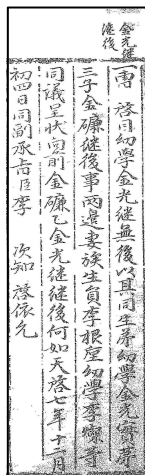 金光継
継後
曺 啓目幼學金光継無後以其同生弟幼學金光實第
三子金𥖝継後事兩邊妻族生員李根屋幼學李㷿等
同議呈狀向前金𥖝乙金光継継後何如天啓七年十二月
初四日同副承旨臣李 次知 啓依允